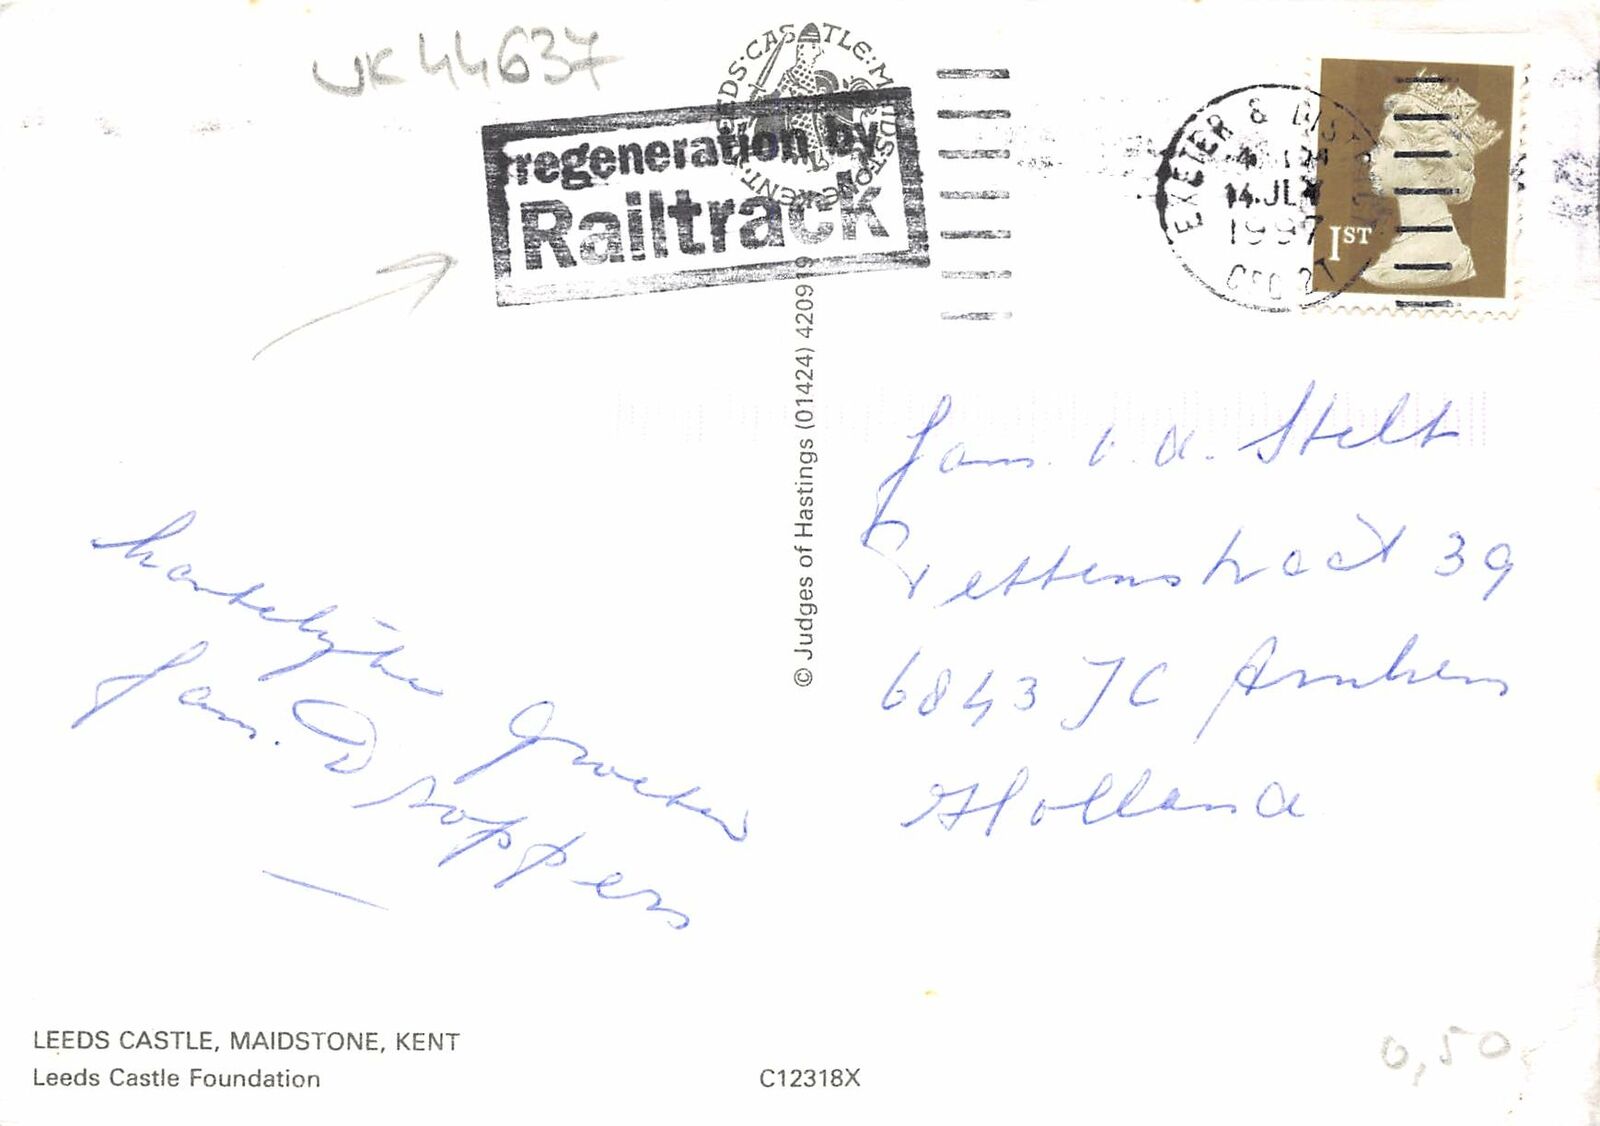 UK44637
LEEDS·CASTLE:MAIDSTONE·KENT·
regeneration by
Railtrack
EXETER & DIST
14 JLY
1997
1ST
© Judges of Hastings (01424) 4209 19
Fam. v. d. Stelt
39
6843 JC Arnhem
Holland
hartelijke
Groeten
Fam. Droppers
LEEDS CASTLE, MAIDSTONE, KENT
Leeds Castle Foundation
C12318X
0,50